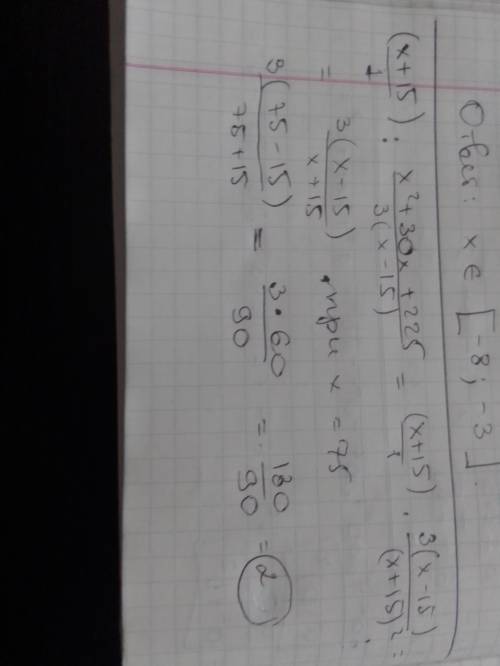 Ответ: x ∈ [-8; -3].
(x+15)/1 : (x²+30x+225)/(3(x-15)) = (x+15)/1 · 3(x-15)/(x+15)² =
= 3(x-15)/(x+15) при x = 75
3(75-15)/(75+15) = 3·60/90 = 180/90 = 2